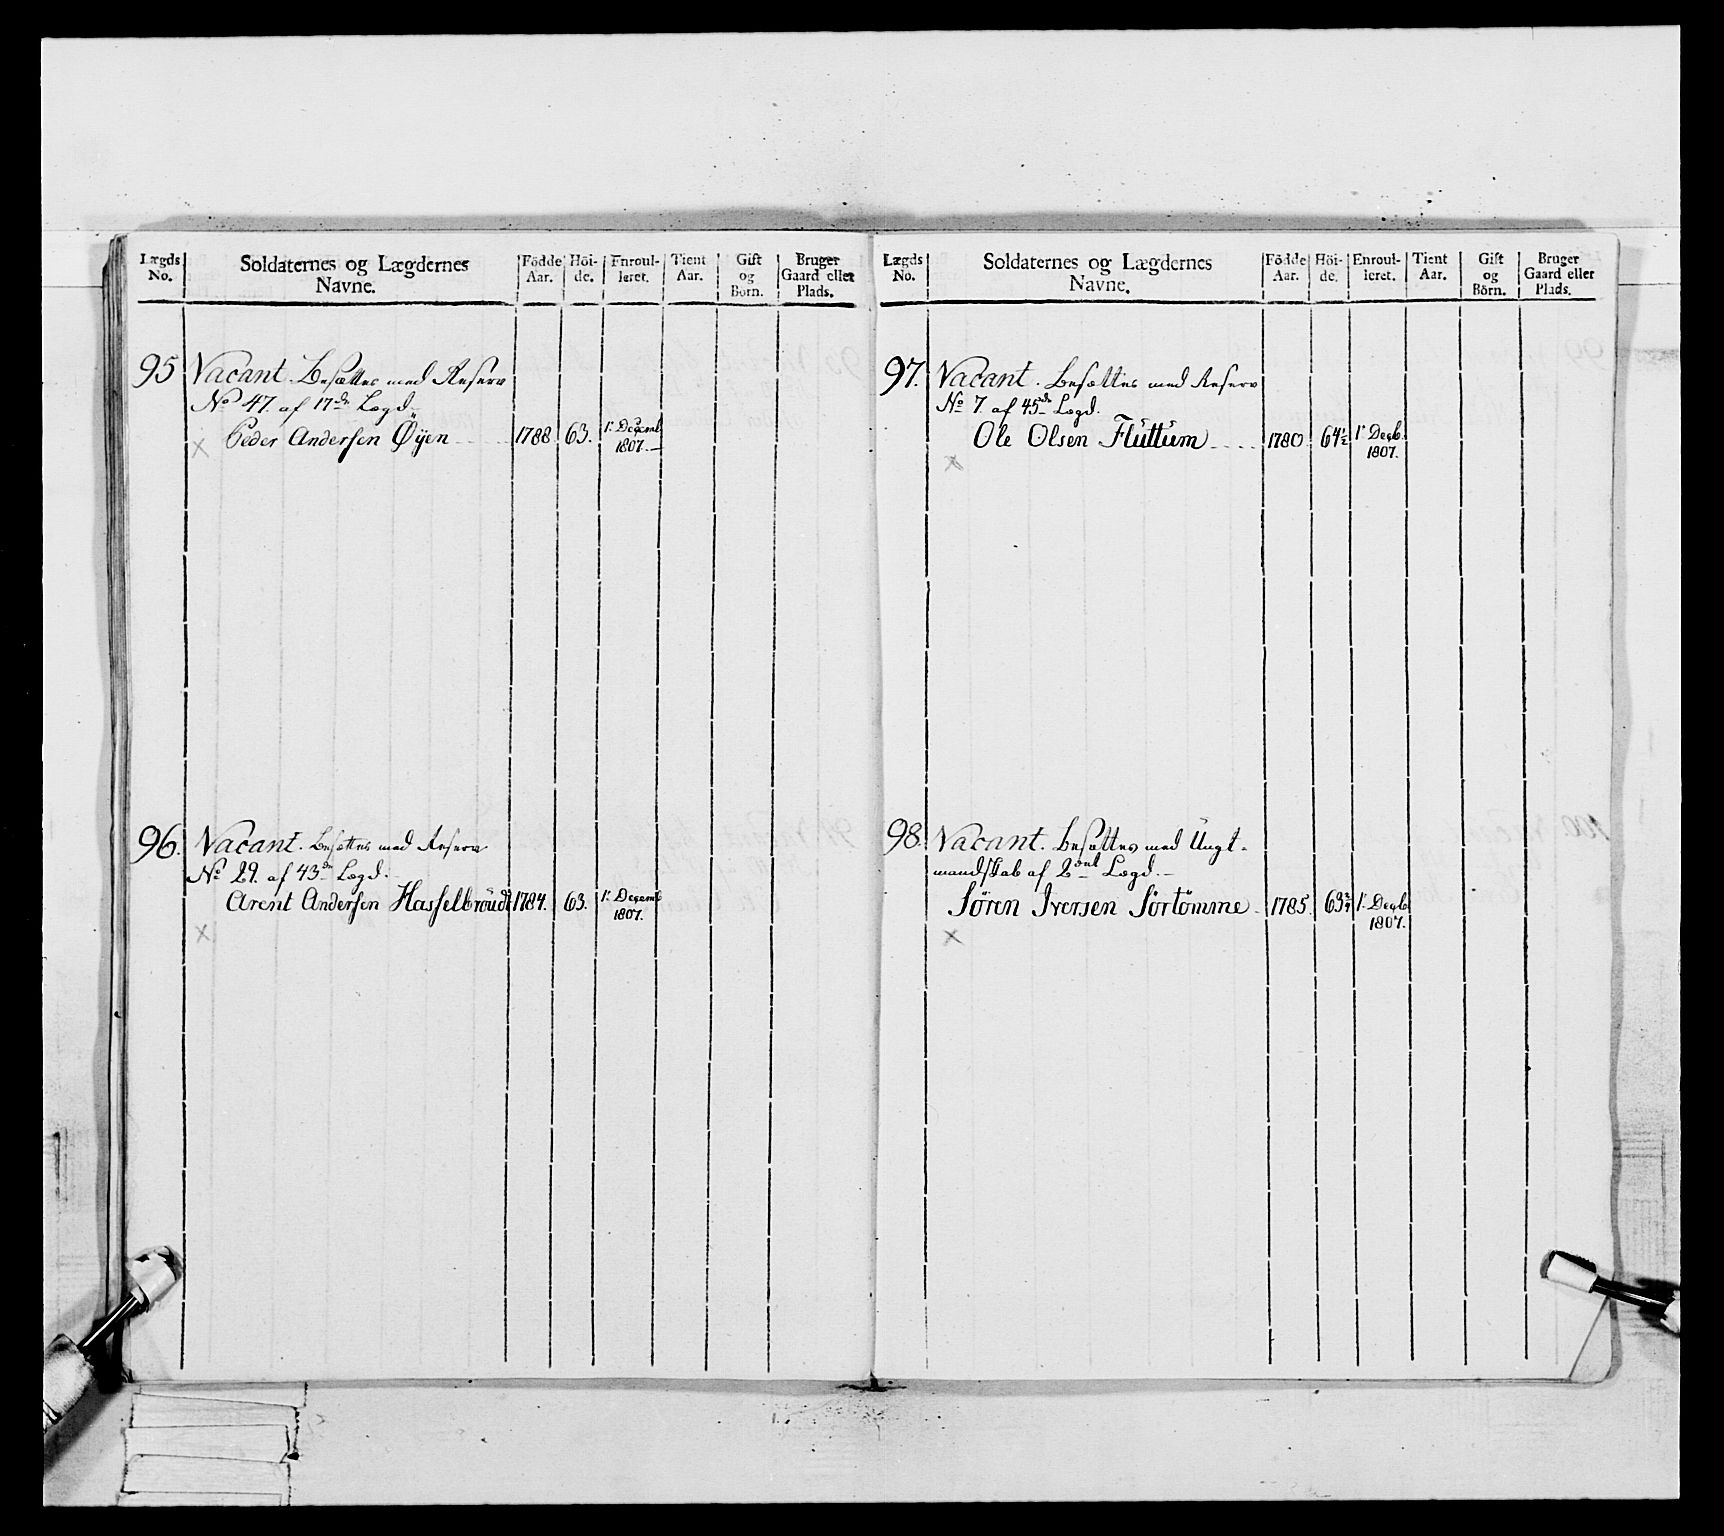 Lægds No.
Soldaternes og Lægdernes Navne.
Födde Aar.
Höi-de.
Enroul-leret.
Tient Aar.
Gift og Börn.
Bruger Gaard eller Plads.
95 Vacant. Besættes med Reserv
No 47. af 17de Lægd.
Peder Andersen Øÿen 1788 63. 1r Decemb
1807.
96. Vacant. Besættes med Reserv
No 29. af 43de Lægd.
Arent Andersen Hasselbroudt 1784. 63. 1r Decemb
1807.
Lægds No.
Soldaternes og Lægdernes Navne.
Födde Aar.
Höi-de.
Enroul-leret.
Tient Aar.
Gift og Börn.
Bruger Gaard eller Plads.
97. Vacant. Besættes med Reserv
No 7. af 45de Lægd.
Ole Olsen Fluttum 1780. 64½ 1r Decb.
1807.
98. Vacant. Besættes med Ungt-
mandskab af 2det Lægd.
Sören Iversen Sörtömme 1785. 63¾ 1r Decb.
1807.